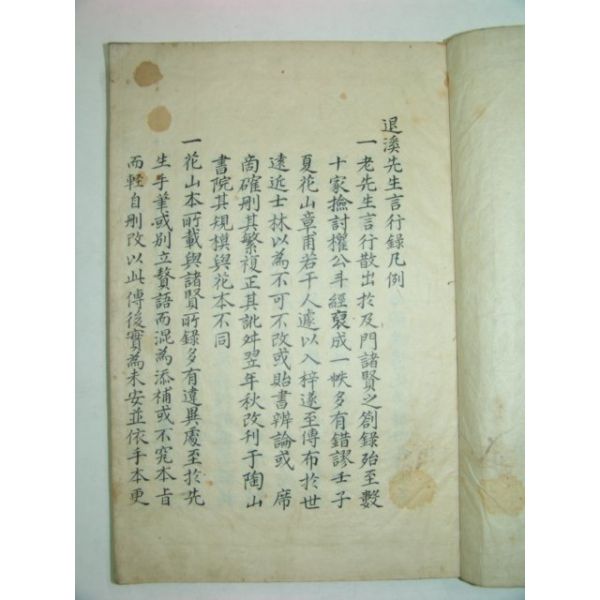 退溪先生言行錄凡例
一老先生言行散出於及門諸賢之箚錄殆至數
十家撿討權公斗經裒成一帙多有錯謬壬子
夏花山章甫若干人遽以入梓遂至傳布於世
遠近士林以爲不可不改或貽書辨論或 席
啇確刪其繁複正其訛舛翌年秋改刊于陶山
書院其規模與花本不同
一花山本所載與諸賢所錄多有違異處至於先
生手筆或別立贅語而混爲添補或不究本旨
而輕自刪改以此傳後實爲未安並依手本更